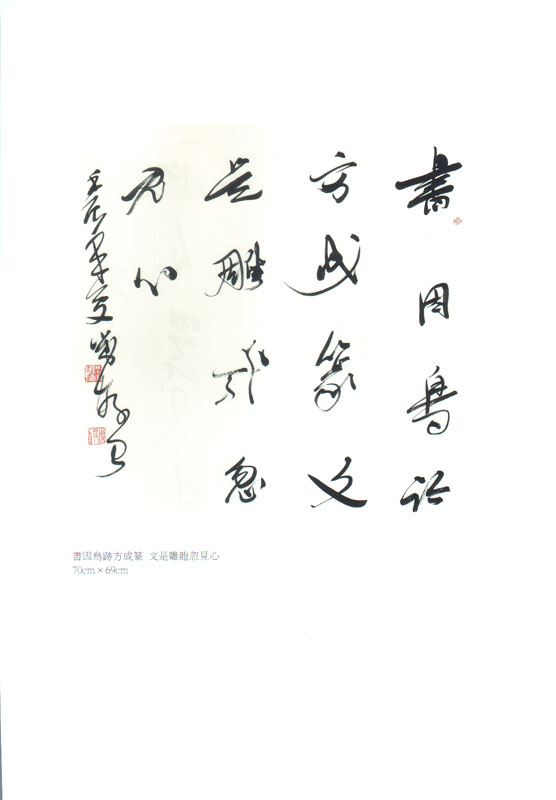 書因鳥跡
方成篆文
是雕龍忽
見心
壬辰
書因鳥跡方成篆 文是雕龍忽見心
70cm×69cm